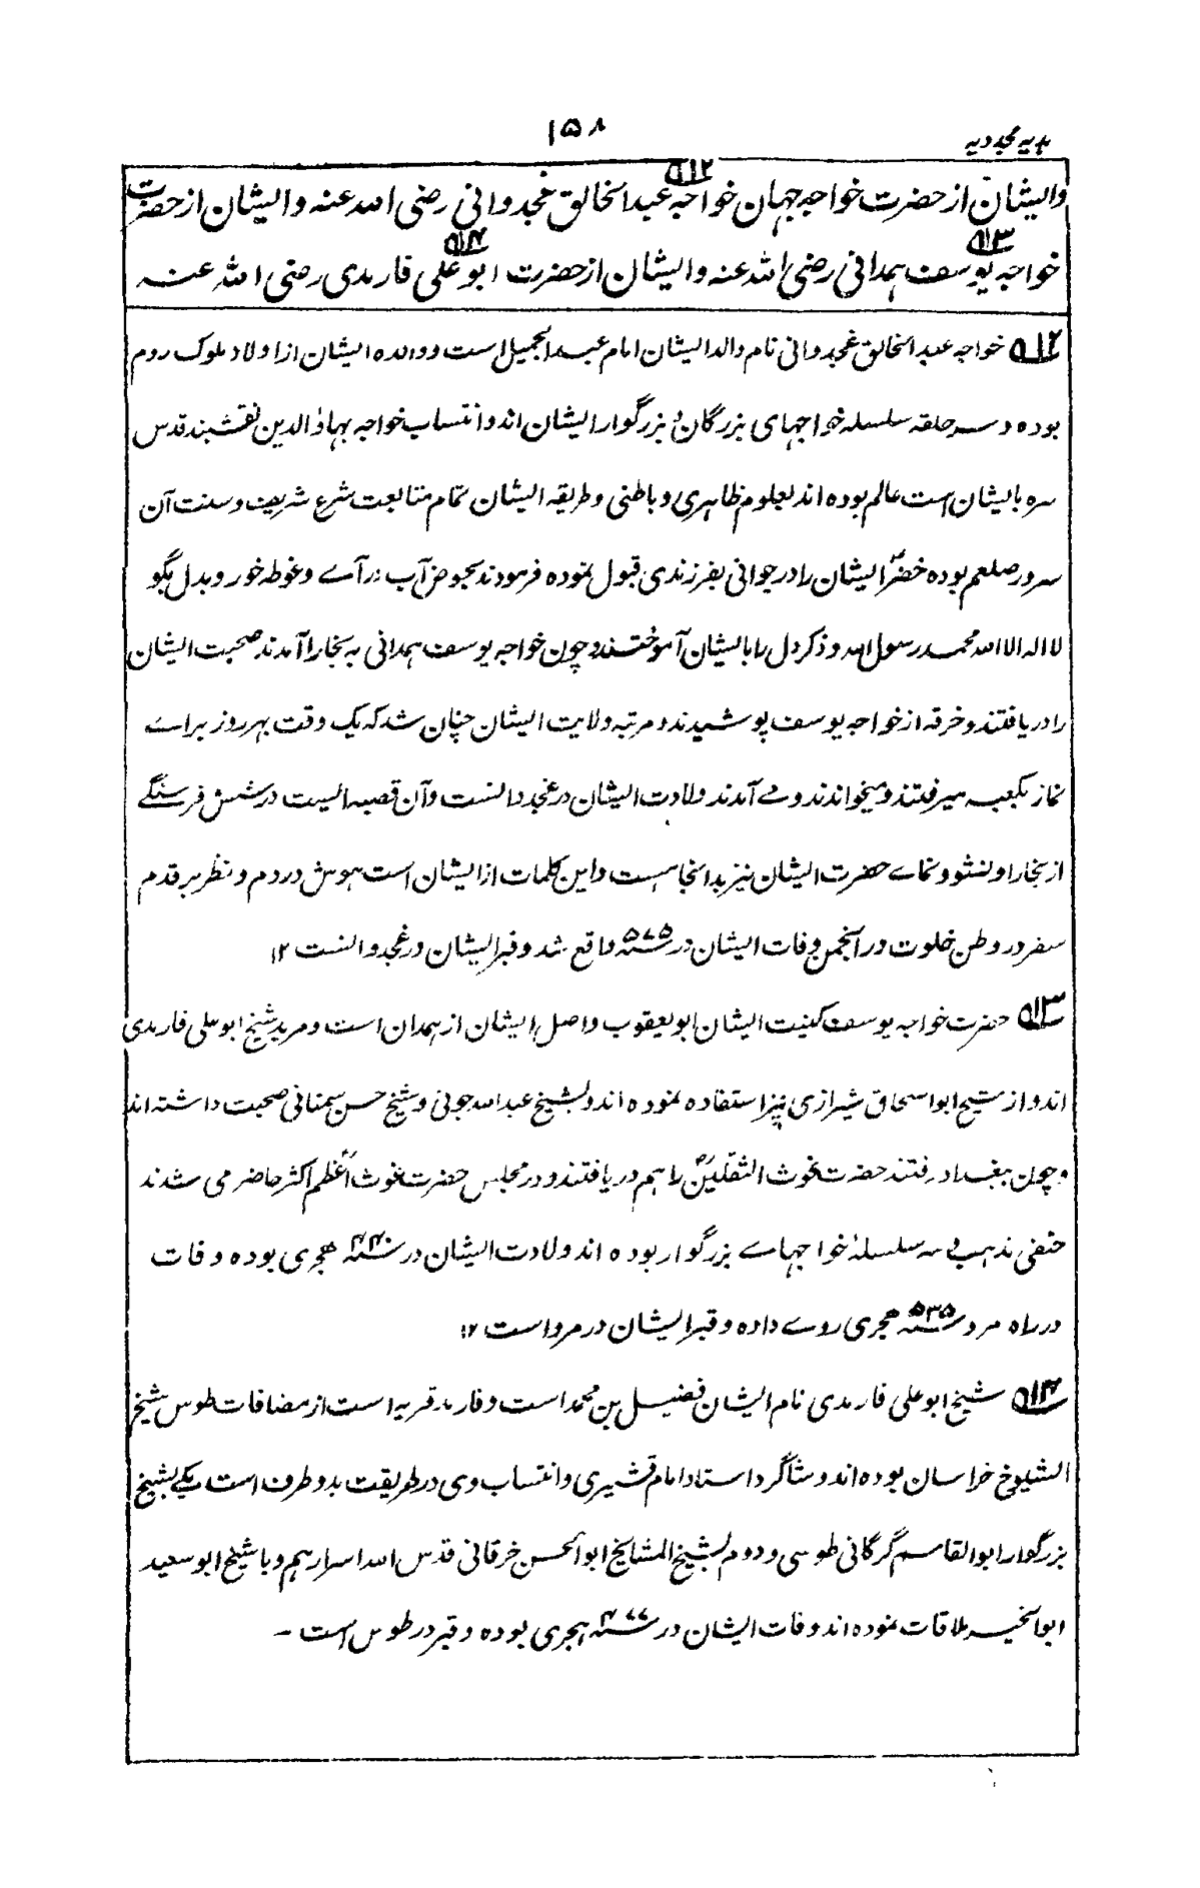 ہدیہ مجددیہ
۱۵۸
وایشان از حضرت خواجہ جہان خواجہ عبدالخالق غجدوانی رضی اللہ عنہ وایشان از حضرت
خواجہ یوسف ہمدانی رضی اللہ عنہ وایشان از حضرت ابو علی فارمدی رضی اللہ عنہ
۵۱۲ خواجہ عبدالخالق غجدوانی نام والد ایشان امام عبدالجمیل است ووالدہ ایشان از اولاد ملوک روم
بودہ و سرحلقہ سلسلہ خواجہای بزرگان بزرگوار ایشان اند وانتساب خواجہ بہاؤالدین نقشبند قدس
سرہ بایشان است عالم بودہ اند بعلوم ظاہری وباطنی وطریقہ ایشان تمام متابعت شرع شریف وسنت آن
سرور صلعم بودہ خضرؑ ایشان را در جوانی بفرزندی قبول نمودہ فرمودند بحوض آب درآے وغوطہ خور وبدل بگو
لا الہ الا اللہ محمد رسول اللہ وذکر دل را بایشان آموختند وچون خواجہ یوسف ہمدانی بہ بخارا آمدند صحبت ایشان
را دریافتند وخرقہ از خواجہ یوسف پوشیدند ومرتبہ ولایت ایشان چنان شد کہ یک وقت ہر روز براے
نماز بکعبہ میرفتند ومیخواندند ومے آمدند ولادت ایشان در غجدوانست وآن قصبہ ایست در شش فرسنگے
از بخارا ونشو ونماے حضرت ایشان نیز بدانجا ہست واین کلمات از ایشان است ہوش در دم ونظر بر قدم
سفر در وطن خلوت در انجمن وفات ایشان در ۵۷۵؁ واقع شد وقبر ایشان در غجدوانست ۱۲
۵۱۳ حضرت خواجہ یوسف کنیت ایشان ابو یعقوب واصل ایشان از ہمدان است ومرید شیخ ابو علی فارمدی
اند واز شیخ ابو اسحاق شیرازی نیز استفادہ نمودہ اند وبشیخ عبداللہ جونی وشیخ حسن سمنانی صحبت داشتہ اند
وچون ببغداد رفتند حضرت غوث الثقلینؓ را ہم دریافتند ودر مجلس حضرت غوث اعظمؓ اکثر حاضر می شدند
حنفی مذہب سر سلسلۂ خواجہاے بزرگوار بودہ اند ولادت ایشان در ۴۴۰؁ ھجری بودہ وفات
در راہ مرو ۵۳۵؁ ھجری روے دادہ وقبر ایشان در مرو است ۱۲
۵۱۴ شیخ ابو علی فارمدی نام ایشان فضیل بن محمد است وفارمد قریہ است از مضافات طوس شیخ
الشیوخ خراسان بودہ اند وشاگرد استاد امام قشیری وانتساب وی در طریقت بدو طرف است یکے بشیخ
بزرگوار ابوالقاسم گرگانی طوسی ودوم بشیخ المشایخ ابوالحسن خرقانی قدس اللہ اسرارہم وبا شیخ ابو سعید
ابوالخیر ملاقات نمودہ اند وفات ایشان در ۴۷۷؁ ہجری بودہ وقبر در طوس است ۔